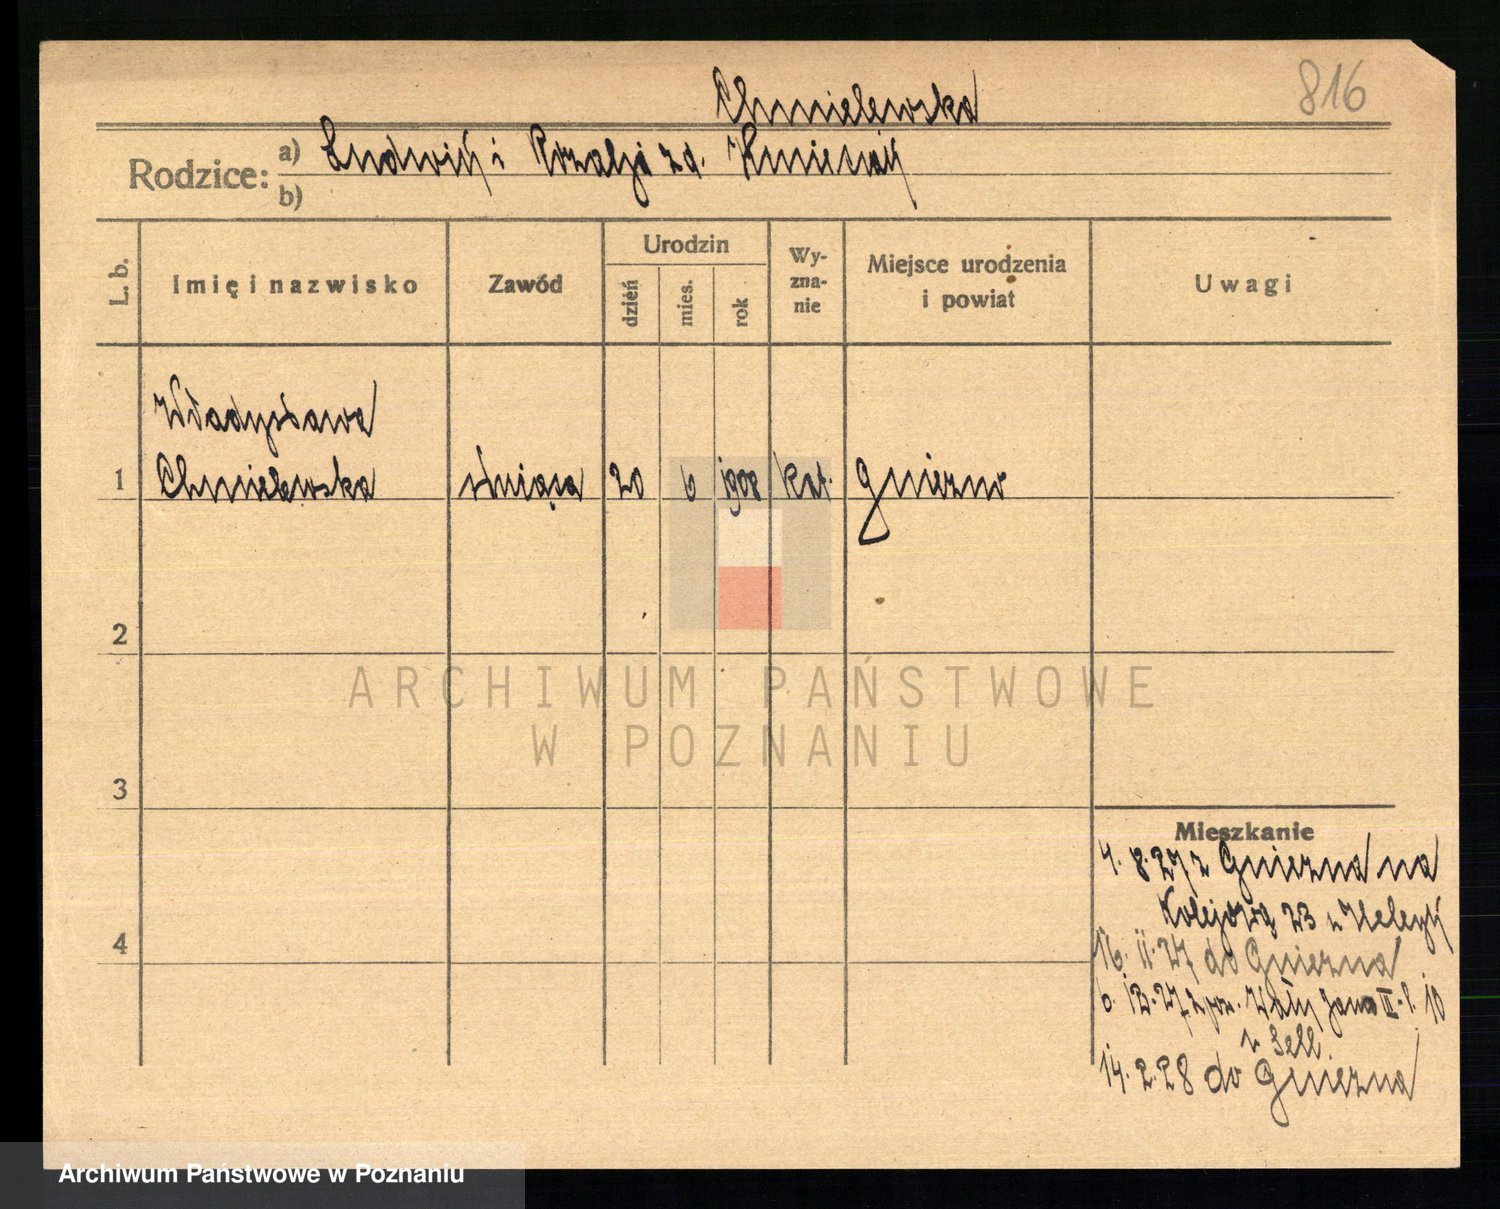 816
Chmielewska
Rodzice: a) Ludwik i Rozalja zd. Kmieciak
b)
L. b.
Imię i nazwisko
Zawód
Urodzin
dzień
mies.
rok
Wy-
zna-
nie
Miejsce urodzenia
i powiat
Uwagi
Władysława
1 Chmielewska służąca 20 6 1908 kat. Gniezno
2
3
4
ARCHIWUM PAŃSTWOWE
W POZNANIU
Mieszkanie
4. 8. 27 z Gniezna na
Kolejową 23 u
16. 11. 27 do Gniezna
6. 12. 27 Wały Jana III 10
u Sell.
14. 2. 28 do Gniezna
Archiwum Państwowe w Poznaniu